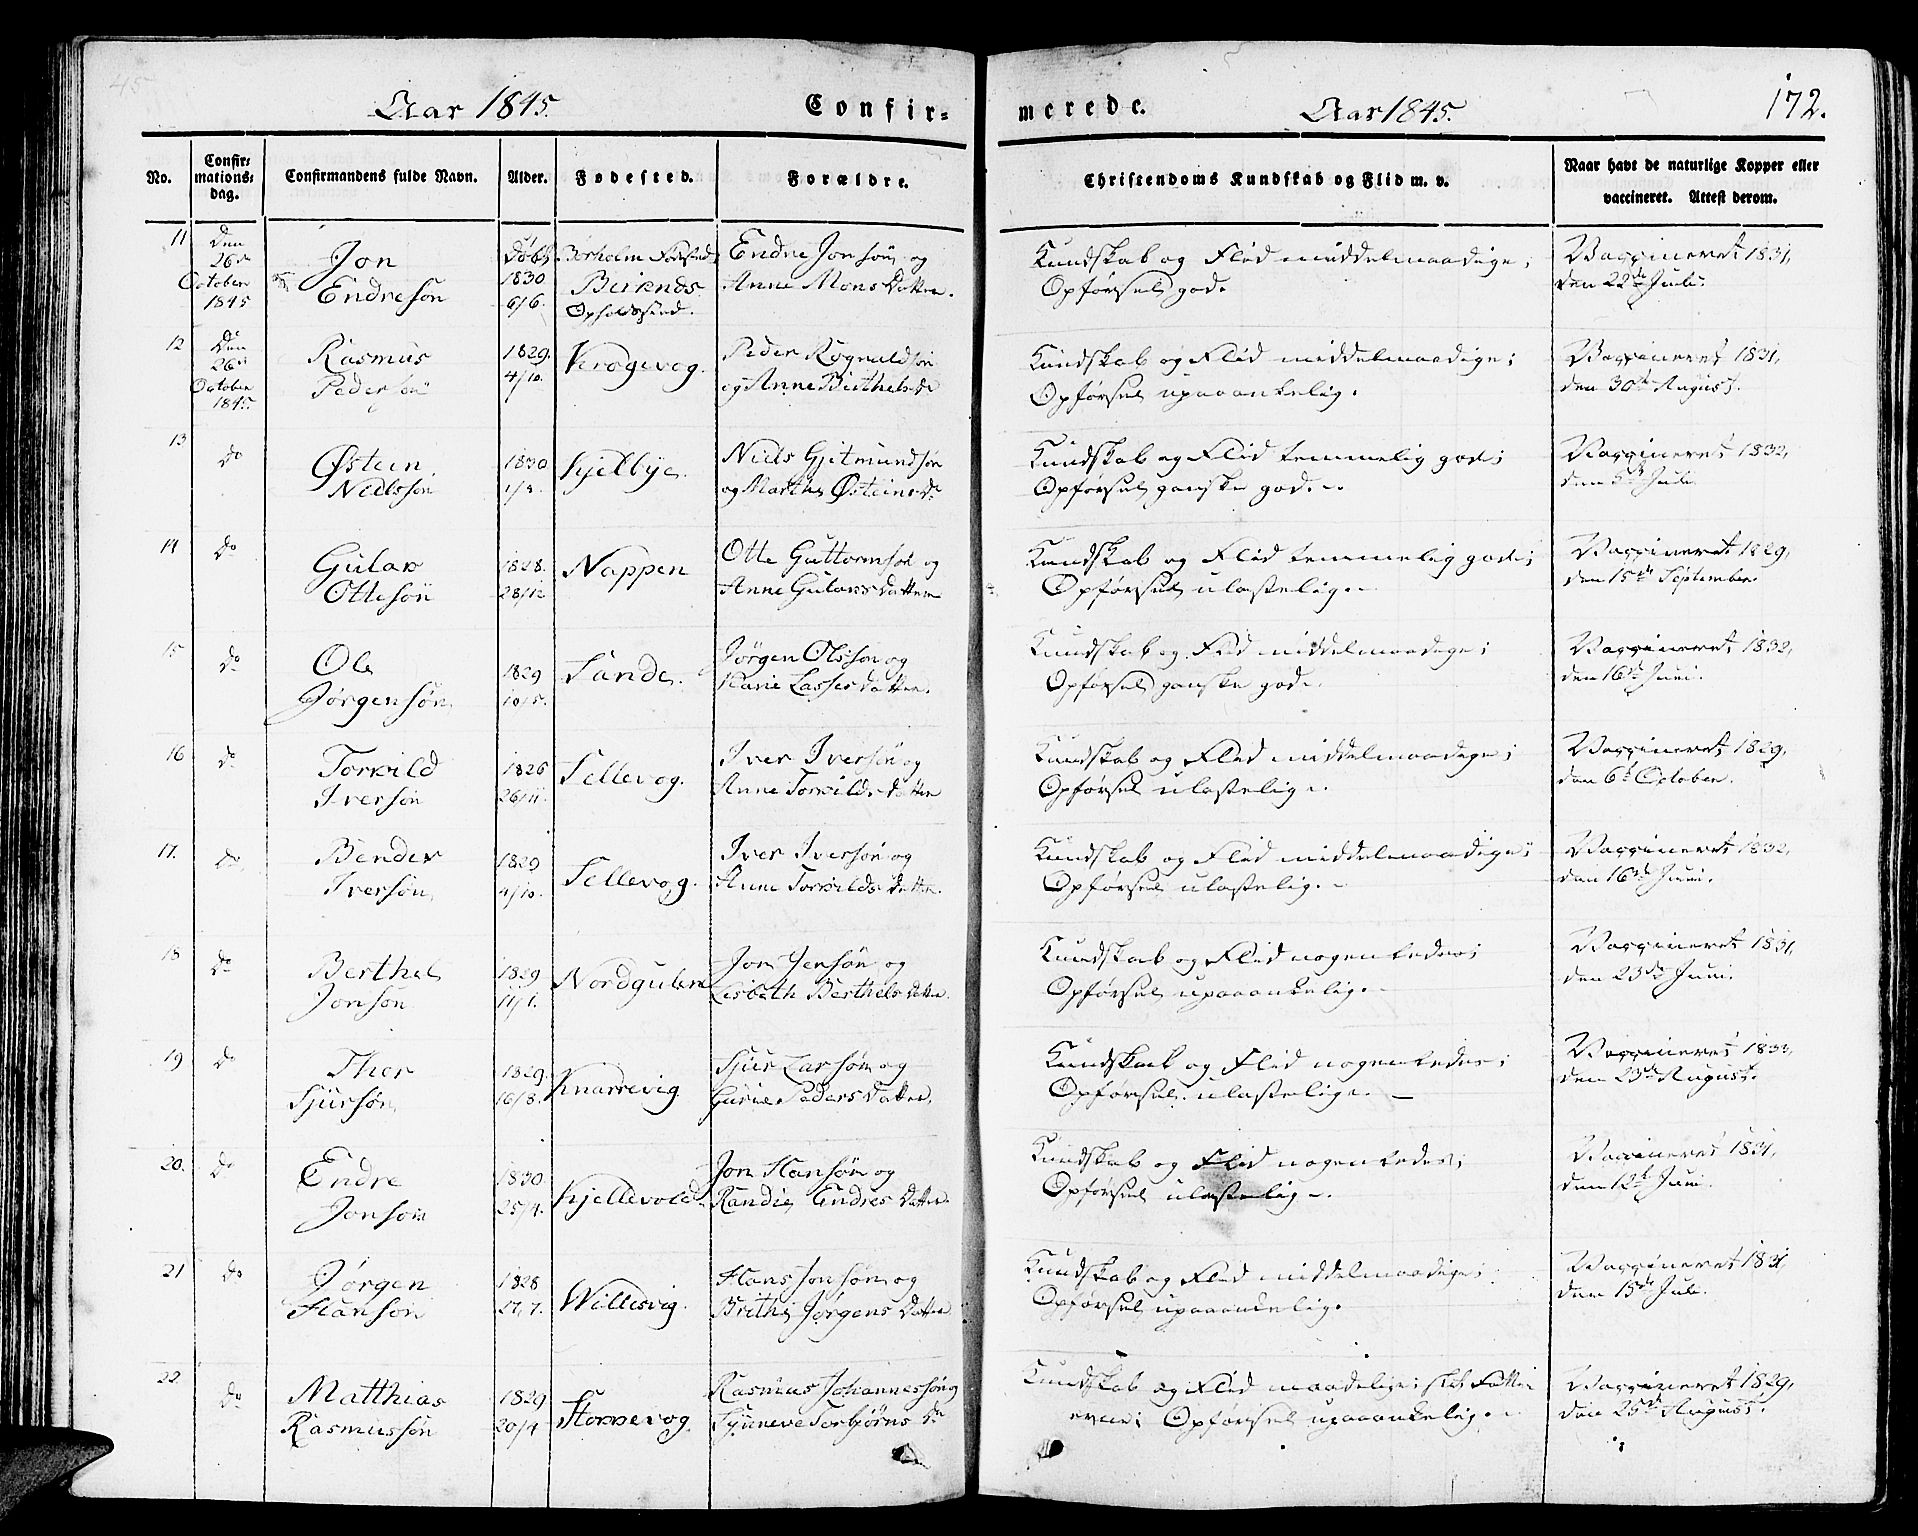 Aar 1845. Confir= merede. Aar 1845. 172.
No. Confir= mations= dag. Confirmandens fulde Navn. Alder. Fødested. Forældre. Christendoms Kundskab og Flid m. v. Naar havt de naturlige Kopper eller vaccineret. Attest derom.
11 Den 26de October 1845 Jon Endresøn Døbt 1830 6/6. Fødested Opholdssted. Endre Jonsøn og Anne Mons Datter. Kundskab og Flid middelmaadige; Opførsel god. Vaccineret 1831, den 22de Juli.
12 Den 26de October 1845 Rasmus Pedersøn 1829. 4/10. Krogevog. Peder Rognaldsøn og Anne Berthels Dr Kundskab og Flid middelmaadige; Opførsel upaaankelig. Vaccineret 1831, den 30te August.
13 Do Østein Nielssøn 1830 1/8. Kjelbye. Niels Gjitmundsøn og Marthe Østeins Dr Kundskab og Flid temmelig god; Opførsel ganske god. Vaccineret 1832, den 5te Juli
14 Do Gular Ottesøn 1828. 28/12 Nappen Otte Guttormsøn og Anne Gulars Datter Kundskab og Flid temmelig gode; Opførsel ulastelig. Vaccineret 1829, den 15de September.
15 Do Ole Jørgensøn 1829 10/5. Sande. Jørgen Olsson og Karie Lasses Datter. Kundskab og Flid middelmaadige; Opførsel ganske god. Vaccineret 1832, den 16de Juni.
16 Do Torkild Iversøn 1826 26/11. Sellevog. Iver Iversøn og Anne Torkilds Datter Kundskab og Flid middelmaadige; Opførsel ulastelig. Vaccineret 1829, den 6te October.
17. Do Bender Iversøn 1829 4/10. Sellevog. Iver Iversøn og Anne Torkilds Datter. Kundskab og Flid middelmaadige; Opførsel ulastelig. Vaccineret 1832, den 16de Juni.
18 Do Berthel Jonsøn 1829 11/1. Nordgulen Jon Jensøn og Lisbeth Berthels Datter. Kundskab og Flid nogenledes; Opførsel upaaankelig. Vaccineret 1831, den 23de Juni.
19 Do Ther Sjursøn 1829. 16/8. Knarrevig Sjur Larsøn og Gurine Peders Datter. Kundskab og Flid nogenledes; Opførsel ulastelig. Vaccineret 1833, den 23de August.
20. Do Endre Jonsøn 1830 25/4. Kjellevold Jon Hansøn og Randie Endres Datter Kundskab og Flid nogenledes; Opførsel ulastelig. Vaccineret 1831, den 12te Juni.
21 Do Jørgen Hansøn 1828 27/7. Willesvig. Hans Jonsøn og Brithe Jørgens Datter Kundskab og Flid middelmaadige; Opførsel upaaankelig. Vaccineret 1831 den 15de Juli.
22. Do Matthias Rasmussøn 1829 20/4 Storrevog. Rasmus Johannessøn og Synneve Torbjørns Dr Kundskab og Flid maadelige; slet Fatte evne; Opførsel upaaankelig. Vaccineret 1829, den 25de August.